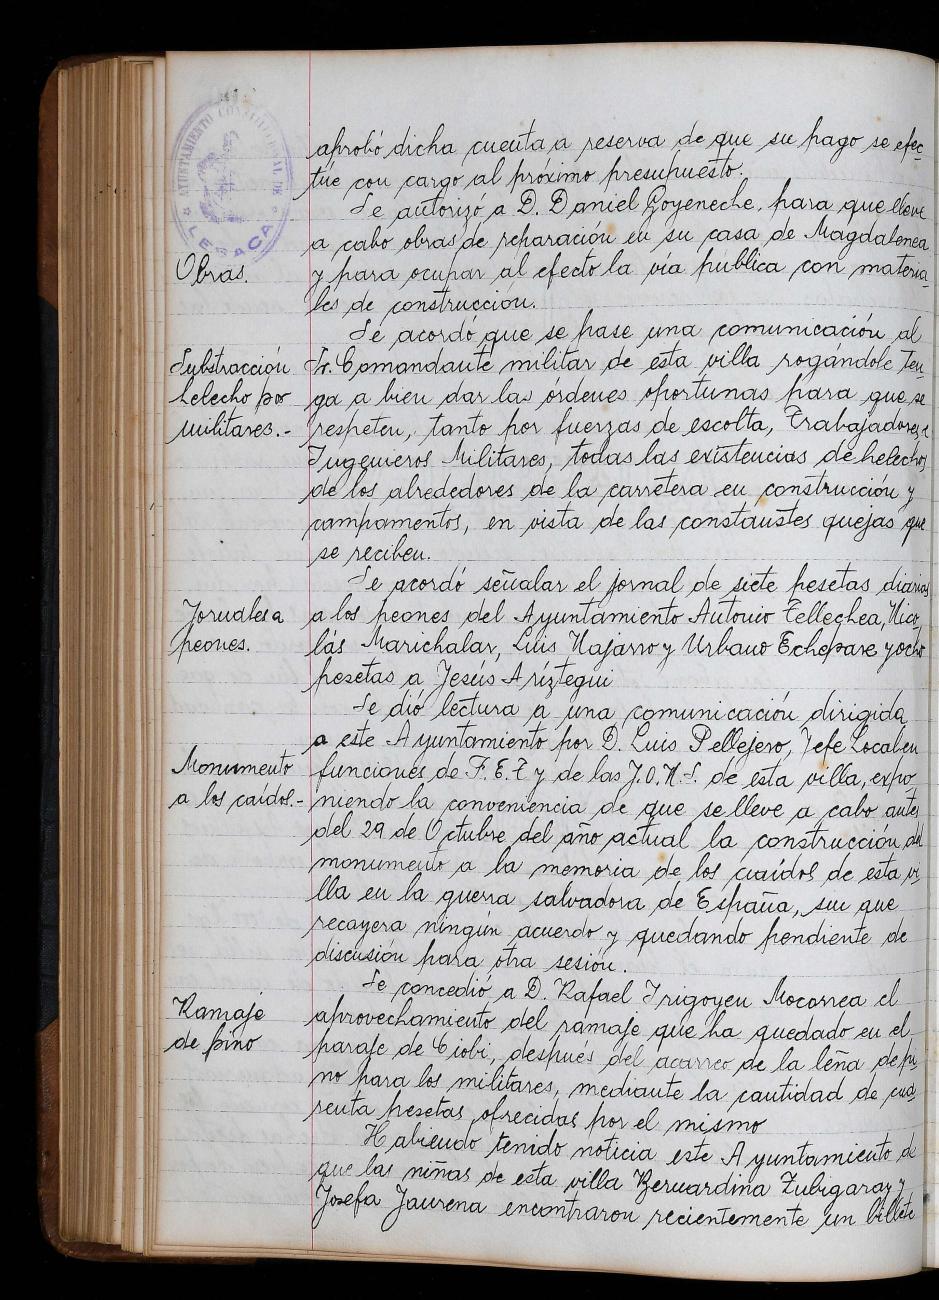 AYUNTAMIENTO CONSTITUCIONAL DE
LESACA
aprobó dicha cuenta a reserva de que su pago se efec-
túe con cargo al próximo presupuesto.
Se autorizó a D. Daniel Goyeneche, para que lleve
a cabo obras de reparación en su casa de Magdalenea
Obras.
y para ocupar al efecto la vía pública con materia-
les de construcción.
Se acordó que se pase una comunicación al
Substracción
helecho por
militares.-
Sr. Comandante militar de esta villa rogándole ten-
ga a bien dar las órdenes oportunas para que se
respeten, tanto por fuerzas de escolta, Trabajadores e
Ingenieros Militares, todas las existencias de helechos
de los alrededores de la carretera en construcción y
campamentos, en vista de las constantes quejas que
se reciben.
Se acordó señalar el jornal de siete pesetas diarias
Jornales a
peones.
a los peones del Ayuntamiento Antonio Tellechea, Nico-
lás Marichalar, Luis Najarro y Urbano Echepare y ocho
pesetas a Jesús Aríztegui
Se dió lectura a una comunicación dirigida
a este Ayuntamiento por D. Luis Pellejero, Jefe Local en
Monumento
a los caidos.-
funciones de F.E.T y de las J.O.N.S. de esta villa, expo-
niendo la conveniencia de que se lleve a cabo antes
del 29 de Octubre del año actual la construcción del
monumento a la memoria de los caídos de esta vi-
lla en la guerra salvadora de España, sin que
recayera ningún acuerdo y quedando pendiente de
discusión para otra sesión.
Se concedió a D. Rafael Irigoyen Mocorrea el
Ramaje
de pino
aprovechamiento del ramaje que ha quedado en el
paraje de Ciobi, después del acarreo de la leña de pi-
no para los militares, mediante la cantidad de cua-
renta pesetas, ofrecidas por el mismo
Habiendo tenido noticia este Ayuntamiento de
que las niñas de esta villa Bernardina Zubigaray y
Josefa Jaurena encontraron recientemente un billete